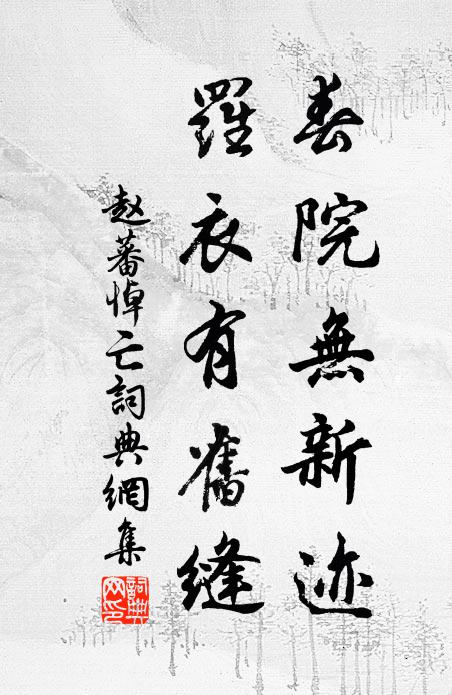 春院無新迹
羅衣有舊縫
赵蕃悼亡詞典網集
詞典網印